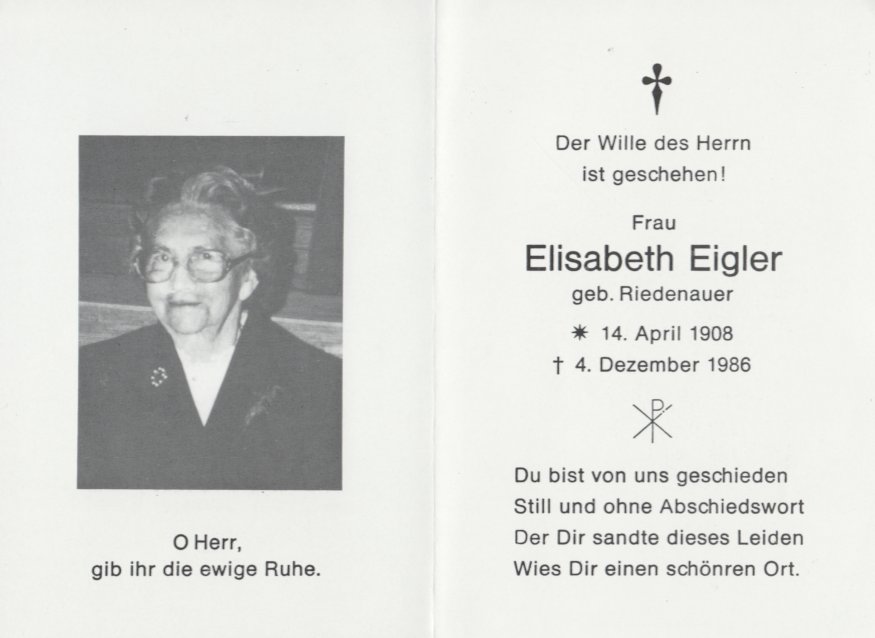 O Herr,
gib ihr die ewige Ruhe.
Der Wille des Herrn
ist geschehen!
Frau
Elisabeth Eigler
geb. Riedenauer
✷ 14. April 1908
† 4. Dezember 1986
Du bist von uns geschieden
Still und ohne Abschiedswort
Der Dir sandte dieses Leiden
Wies Dir einen schönren Ort.